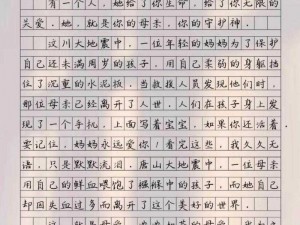 有一个人，她给了你生命，给了你无限的
关爱，她，就是你的母亲，你的守护神。
这川大地震中，一位年轻的妈妈为了保护
自己还未满周岁的孩子，用自己柔弱的身躯挡
住了沉重的水泥板，当救援人员发现他们时，
那位母亲已经离开了人世，人们在孩子身上发
现了一个手机，上面写着宝宝，如果你还活着，
要记住，妈妈永远爱你！看到这里，我久久无
语，只是默默流泪。唐山大地震中，一位母亲
用自己的鲜血喂饱了襁褓中的孩子，而她自己
却因失血过多而离开了这个美好的世界。